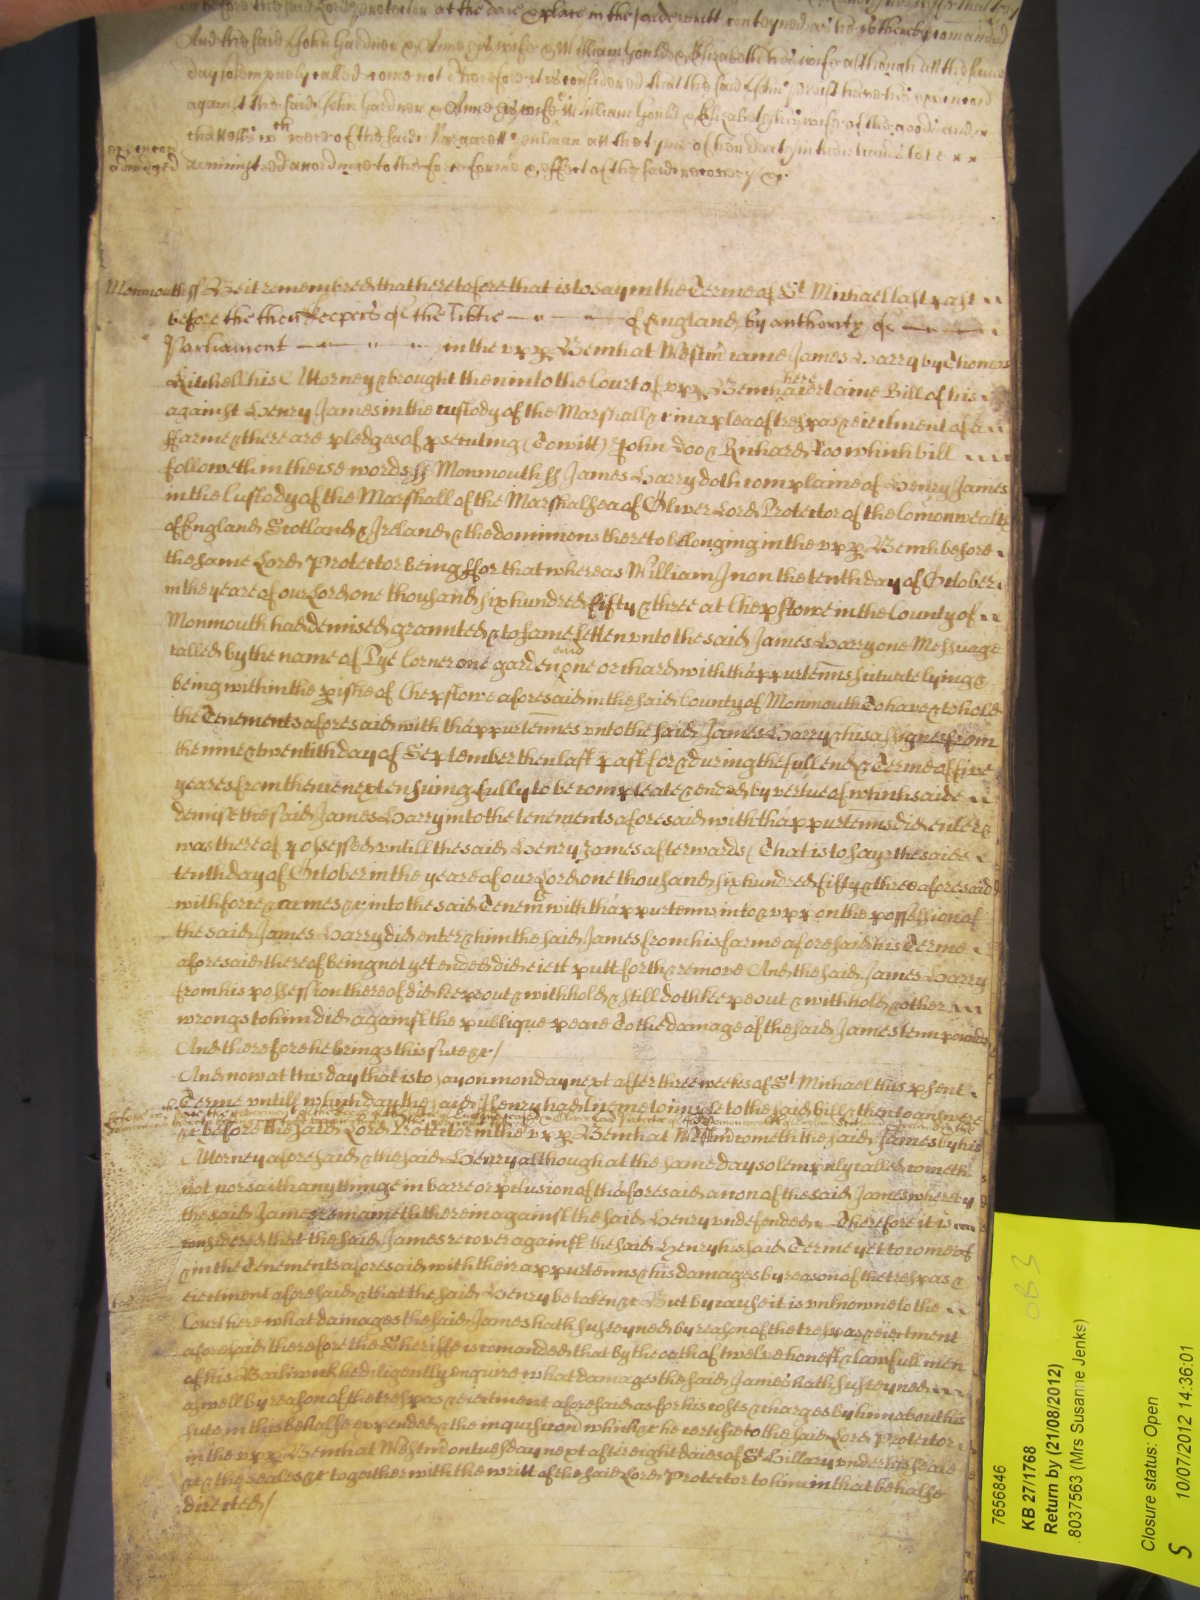 to before the said Lord protector at the daie & place in the said writt conteyned as hee is thereby comanded
And the said John Gardner & Anne his wife & William Gould & Elizabeth his wife although att the same
day solempnely called come not Therefore it is considered that the said John have his execucon
against the said John Gardner & Anne his wife & William Gould & Elizabeth his wife of the goods and
chattells wch were of the said Margarett Pulman att the tyme of her death in their hands to be
execucon
adiudged administred according to the force forme & effect of the said recovery &c.
Monmouth ss Be it remembred that heretofore that is to say in the Terme of St Michael last past
before the then keepers of the libtie of England by authority of
Parliament in the vpp Bench at Westm came James Harry by Thomas
Kitchell his Attorney & brought then into the Court of vpp Bench here a certaine Bill of his
against Henry James in the custody of the Marshall &c in a plea of trespas & eiectment of a
ffarme & there are pledges of psecuting (To witt) John Doo & Richard Roo which bill
followeth in theise words ss Monmouth ss James Harry doth complaine of Henry James
in the Custody of the Marshall of the Marshalsea of Oliver Lord Protector of the Comonwealth
of England Scotland & Ireland & the dominions thereto belonging in the vpp Bench before
the same Lord Protector being ffor that whereas William Jnon the tenth day of October
in the yeare of our Lord one thousand six hundred fifty & three at Chepstowe in the County of
Monmouth had demised graunted & to farme letten vnto the said James Harry one Messuage
called by the name of Pye Corner one garden and one orchard with thappurtenns scituate lying &
being within the pishe of Chepstowe aforesaid in the said County of Monmouth To have & to hold
the Tenements aforesaid with thappurtennes vnto the said James Harry & his assignes from
the nine & twentith day of September then last past for & during the full end & Terme of five
yeares from thence next ensuing fully to be compleate & ended by vertue of which said
demise the said James Harry into the tenements aforesaid with thappurtenns did enter &
was thereof possessed vntill the said Henry James afterwards (That is to say) the said
tenth day of October in the yeare of our Lord one thousand six hundred fifty & three aforesaid
with force & armes &c into the said Tenemts with thappurtenns in to & vpp on the possession of
the said James Harry did enter & him the said James from his farme aforesaid his Terme
aforesaid thereof being not yet ended did eiect putt forth & remove And the said James Harry
from his possession thereof did keepe out & withhold & still doth keepe out & withhold & other
wrongs to him did against the publique peace To the damage of the said James tenn pounds
And therefore he brings his suite &c/
And now at this day that is to say on monday next after three weekes of St Michael this psent
Terme vntill which day the said Henry had licence to imple to the said bill & then to answere
&c before the said Lord Protector in the vpp Bench at Westm cometh the said James by his
Attorney aforesaid & the said Henry although at the same day solempnly called cometh
not nor saith any thinge in barre or pclusion of thaforesaid accon of the said James whereby
the said James remaineth therein against the said Henry vndefended Therefore it is
considered that the said James recover against the said Henry his said Terme yet to come of
& in the Tenements aforesaid with their appurtenns & his damages by reason of the trespas &
eiectment aforesaid & that the said Henry be taken &c But because it is vnknowne to the
Court here what damages the said James hath susteyned by reason of the trespas & eiectment
aforesaid therefore the Sheriffe is comanded that by the oath of twelve honest & lawfull men
of his Bailiwick he diligently enquire what damages the said James hath susteyned
aswell by reason of the trespas & eiectment aforesaid as for his costs & charges by him about his
suite in this behalfe expended & the inquisicon which &c he certifie to the said Lord Protector
in the vpp Bench at Westm on tuesday next after eight daies of St Hillary vnder his seale
&c & the seales &c together with the writt of the said Lord Protector to him in that behalfe
directed/
OB 3
7656846
KB 27/1768
Return by (21/08/2012)
8037563 (Mrs Susanne Jenks)
Closure status: Open
10/07/2012 14:36:01
S